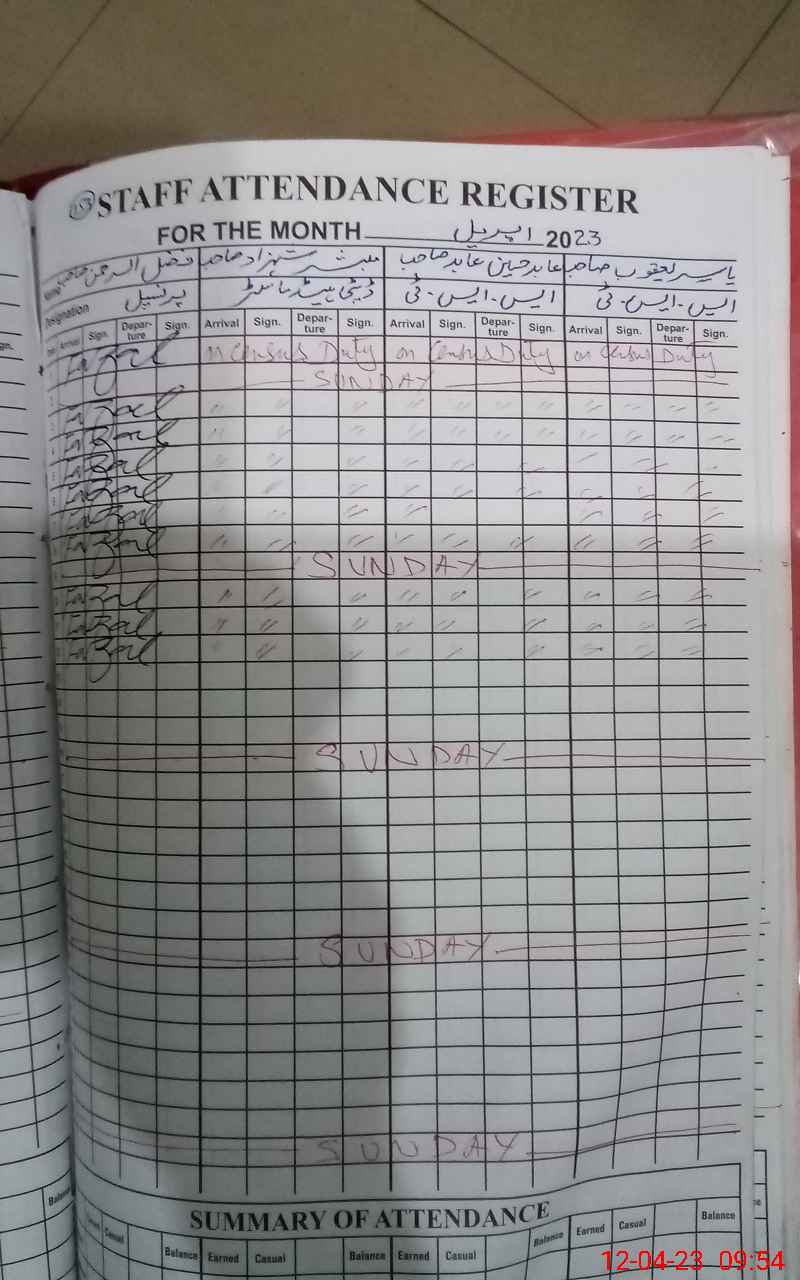 STAFF ATTENDANCE REGISTER
FOR THE MONTH اپریل 2023
Name فضل الرحمن صاحب مبشر شہزاد صاحب عابد حسین عابد صاحب یاسر یعقوب صاحب
Designation پرنسپل ڈپٹی ہیڈ ماسٹر ایس-ایس-ٹی ایس-ایس-ٹی
Arrival Sign. Depar-ture Sign. Arrival Sign. Depar-ture Sign. Arrival Sign. Depar-ture Sign. Arrival Sign. Depar-ture Sign.
Fazal on Census Duty on Census Duty on Census Duty
SUNDAY
Fazal 〃 〃 〃 〃 〃 〃 〃 〃 〃 〃 〃
Fazal 〃 〃 〃 〃 〃 〃 〃 〃 〃 〃 〃
Fazal 〃 〃 〃 〃 〃 〃 〃 〃
Fazal 〃 〃 〃 〃 〃 〃 〃 〃 〃
Fazal 〃 〃 〃 〃 〃
Fazal 〃 〃 〃 〃 〃 〃 〃 〃 〃
SUNDAY
Fazal 〃 〃 〃 〃 〃 〃 〃 〃 〃
Fazal 〃 〃 〃 〃 〃 〃 〃 〃 〃
Fazal 〃 〃 〃 〃 〃 〃 〃 〃 〃
SUNDAY
SUNDAY
SUNDAY
SUMMARY OF ATTENDANCE
Balance Casual Balance Earned Casual Balance Earned Casual Balance Earned Casual Balance
12-04-23 09:54